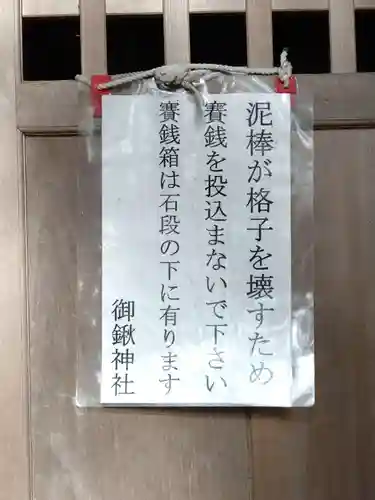 泥棒が格子を壊すため
賽銭を投込まないで下さい
賽銭箱は石段の下に有ります
御鍬神社